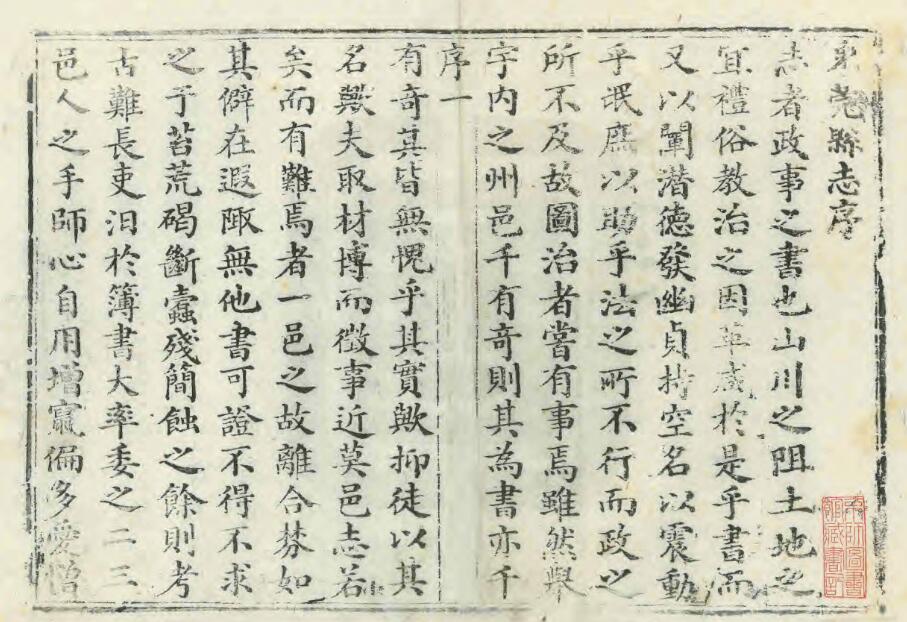 東莞縣志序
志者政事之書也山川之阻土地之
宜禮俗教治之因革咸於是乎書而
又以闡潛德發幽貞持空名以震動
乎氓庶以助乎法之所不行而政之
所不及故圖治者嘗有事焉雖然舉
宇内之州邑千有奇則其為書亦千
序一
有奇其皆無愧乎其實歟抑徒以其
名歟夫取材博而徵事近莫邑志若
矣而有難焉者一邑之故離合棼如
其僻在遐陬無他書可證不得不求
之于苔荒碣斷蠹殘簡蝕之餘則考
古難長吏汩於簿書大率委之二三
邑人之手師心自用增竄偏多愛憎